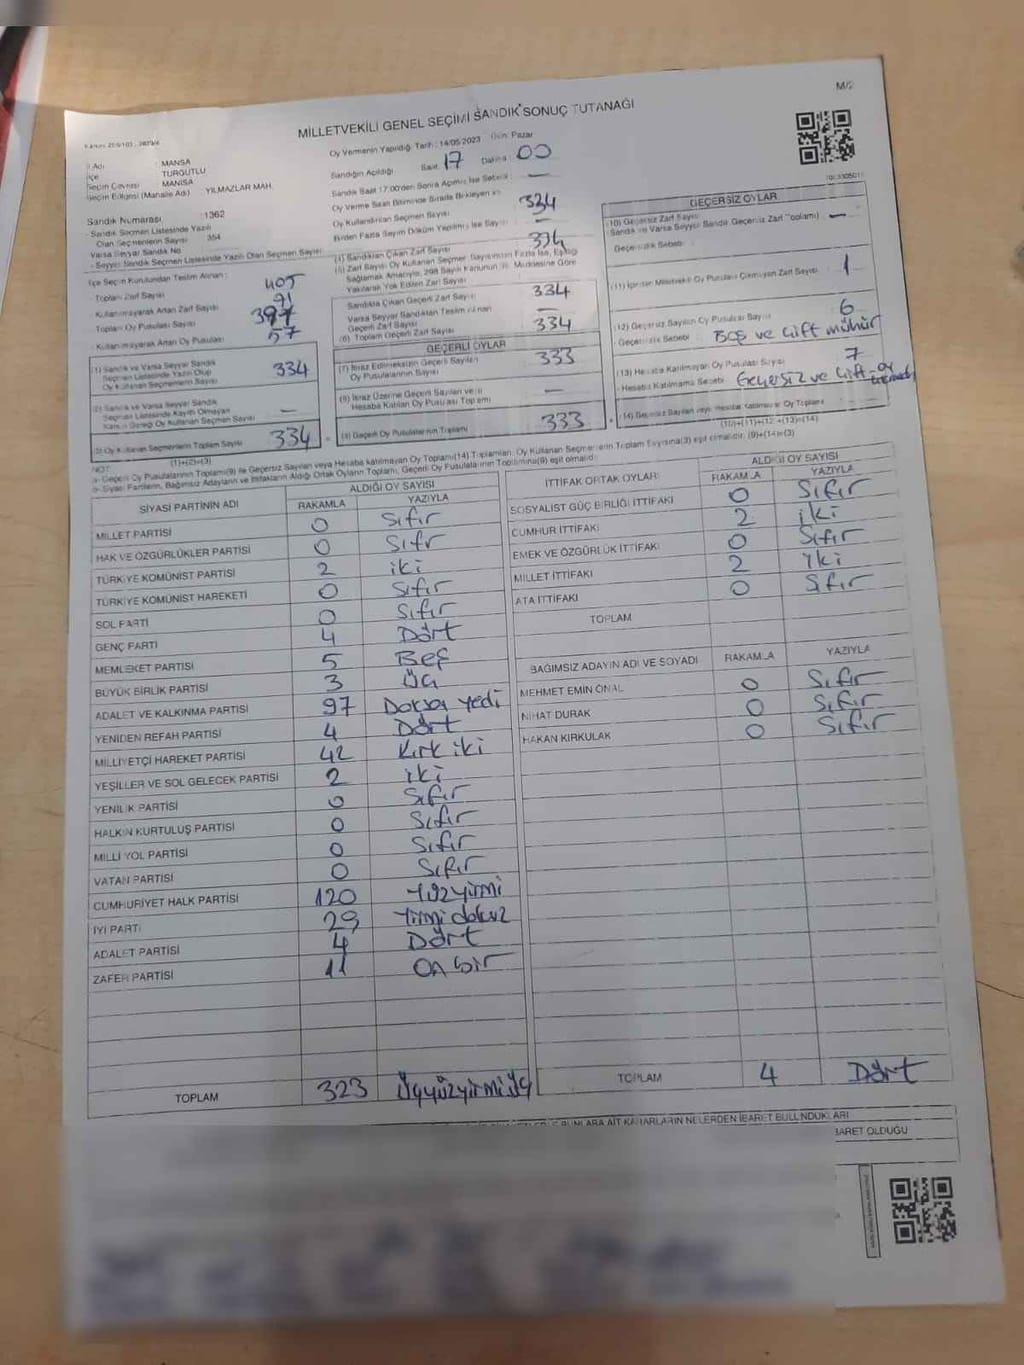 M/2
MİLLETVEKİLİ GENEL SEÇİMİ SANDIK SONUÇ TUTANAĞI
Oy Vermenin Yapıldığı Tarih : 14/05/2023 Gün: Pazar
Sandığın Açıldığı Saat: 17 Dakika : 00
Sandık Saat 17:00'den Sonra Açılmış İse Sebebi : —
MANİSA
İlçe : TURGUTLU
Seçim Çevresi : MANİSA
YILMAZLAR MAH.
Sandık Numarası : 1362
- Sandık Seçmen Listesinde Yazılı
Olan Seçmenlerin Sayısı 354
Varsa Seyyar Sandık No
- Seyyar Sandık Seçmen Listesinde Yazılı Olan Seçmen Sayısı
İlçe Seçim Kurulundan Teslim Alınan :
- Toplam Zarf Sayısı 405
- Kullanılmayarak Artan Zarf Sayısı 91
Toplam Oy Pusulası Sayısı
- Kullanılmayarak Artan Oy Pusulası 57
(1) Sandık ve Varsa Seyyar Sandık
Seçmen Listesinde Yazılı Olup
Oy Kullanan Seçmenlerin Sayısı 334
(2) Sandık ve Varsa Seyyar Sandık
Seçmen Listesinde Kayıtlı Olmayan
Kanun Gereği Oy Kullanan Seçmen Sayısı —
(3) Oy Kullanan Seçmenlerin Toplam Sayısı 334
(1)+(2)=(3)
Oy Verme Saati Bitiminde Sırada Bekleyen ve
Oy Kullandırılan Seçmen Sayısı 334
Birden Fazla Sayım Döküm Yapılmış İse Sayısı : —
(4) Sandıktan Çıkan Zarf Sayısı 334
(5) Zarf Sayısı Oy Kullanan Seçmen Sayısından Fazla İse, Eşitliği
Sağlamak Amacıyla, 298 Sayılı Kanunun 98. Maddesine Göre
Yakılarak Yok Edilen Zarf Sayısı
Sandıkta Çıkan Geçerli Zarf Sayısı 334
Varsa Seyyar Sandıktan Teslim Alınan
Geçerli Zarf Sayısı —
(6) Toplam Geçerli Zarf Sayısı 334
GEÇERLİ OYLAR
(7) İtiraz Edilmeksizin Geçerli Sayılan
Oy Pusulalarının Sayısı 333
(8) İtiraz Üzerine Geçerli Sayılan ve
Hesaba Katılan Oy Pusulası Toplamı —
(9) Geçerli Oy Pusulalarının Toplamı 333
GEÇERSİZ OYLAR
(10) Geçersiz Zarf Sayısı
Sandık ve Varsa Seyyar Sandık Geçersiz Zarf Toplamı) —
Geçersizlik Sebebi
(11) İçinden Milletvekili Oy Pusulası Çıkmayan Zarf Sayısı : 1
(12) Geçersiz Sayılan Oy Pusulası Sayısı : 6
Geçersizlik Sebebi : Boş ve Çift mühür
(13) Hesaba Katılmayan Oy Pusulası Sayısı 7
- Hesaba Katılmama Sebebi : Geçersiz ve Çift-oy
(14) Geçersiz Sayılan veya Hesaba Katılmayan Oy Toplamı —
(10)+(11)+(12)+(13)=(14)
NOT
a- Geçerli Oy Pusulalarının Toplamı(9) ile Geçersiz Sayılan veya Hesaba katılmayan Oy Toplamı(14) Toplamları, Oy Kullanan Seçmenlerin Toplam Sayısına(3) eşit olmalıdır. (9)+(14)=(3)
b- Siyasi Partilerin, Bağımsız Adayların ve İttifakların Aldığı Ortak Oyların Toplamı, Geçerli Oy Pusulalarının Toplamına(9) eşit olmalıdır
SİYASİ PARTİNİN ADI ALDIĞI OY SAYISI
RAKAMLA YAZIYLA
MİLLET PARTİSİ 0 Sıfır
HAK VE ÖZGÜRLÜKLER PARTİSİ 0 Sıfr
TÜRKİYE KOMÜNİST PARTİSİ 2 iki
TÜRKİYE KOMÜNİST HAREKETİ 0 Sıfır
SOL PARTİ 0 Sıfır
GENÇ PARTİ 4 Dört
MEMLEKET PARTİSİ 5 Beş
BÜYÜK BİRLİK PARTİSİ 3 Üç
ADALET VE KALKINMA PARTİSİ 97 Doksan yedi
YENİDEN REFAH PARTİSİ 4 Dört
MİLLİYETÇİ HAREKET PARTİSİ 42 Kırk iki
YEŞİLLER VE SOL GELECEK PARTİSİ 2 iki
YENİLİK PARTİSİ 0 Sıfır
HALKIN KURTULUŞ PARTİSİ 0 Sıfır
MİLLİ YOL PARTİSİ 0 Sıfır
VATAN PARTİSİ 0 Sıfır
CUMHURİYET HALK PARTİSİ 120 Yüzyirmi
İYİ PARTİ 29 Yirmi dokuz
ADALET PARTİSİ 4 Dört
ZAFER PARTİSİ 11 On bir
TOPLAM 323 Üçyüzyirmiüç
İTTİFAK ORTAK OYLARI ALDIĞI OY SAYISI
RAKAMLA YAZIYLA
SOSYALİST GÜÇ BİRLİĞİ İTTİFAKI 0 Sıfır
CUMHUR İTTİFAKI 2 iki
EMEK VE ÖZGÜRLÜK İTTİFAKI 0 Sıfır
MİLLET İTTİFAKI 2 iki
ATA İTTİFAKI 0 Sıfır
TOPLAM
BAĞIMSIZ ADAYIN ADI VE SOYADI RAKAMLA YAZIYLA
MEHMET EMİN ÖNAL 0 Sıfır
NİHAT DURAK 0 Sıfır
HAKAN KIRKULAK 0 Sıfır
TOPLAM 4 Dört
BUNLARA AİT KARARLARIN NELERDEN İBARET BULUNDUKLARI
İBARET OLDUĞU